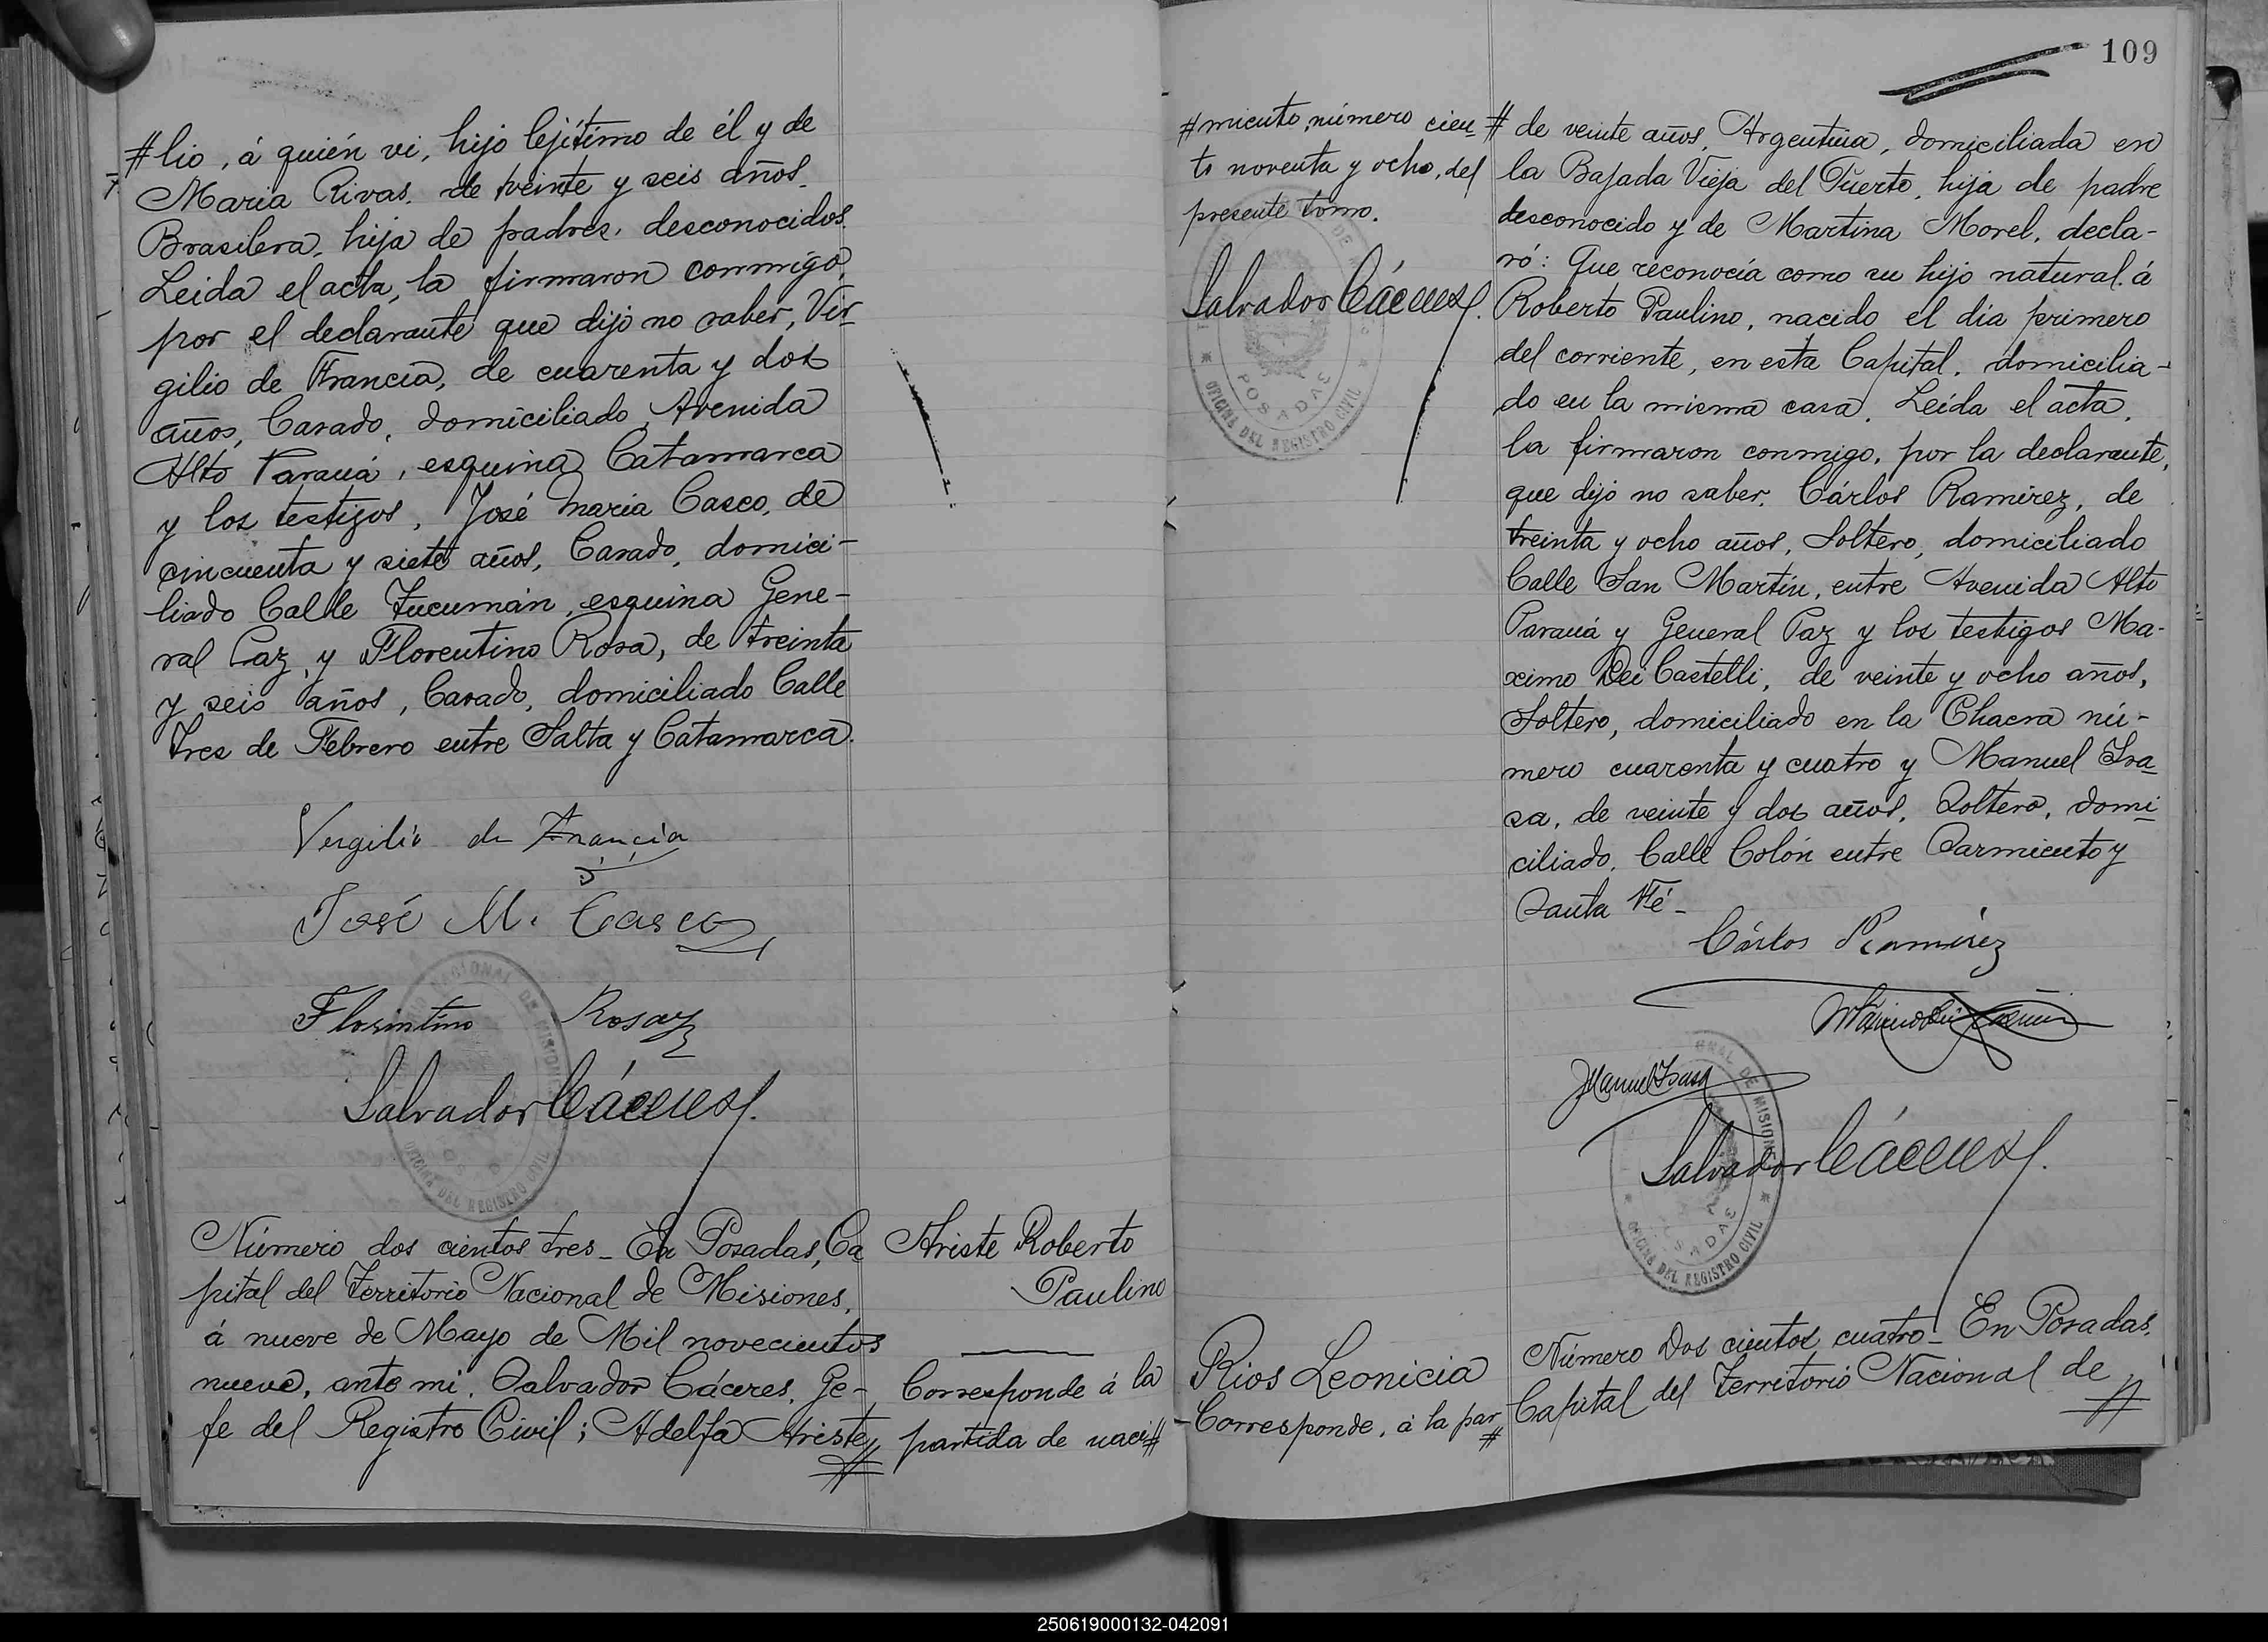 #lio, á quién vi, hijo lejítimo de él y de
Maria Rivas, de veinte y seis años,
Brasilera, hija de padres desconocidos.
Leida el acta, la firmaron conmigo,
por el declarante que dijo no saber, Vir-
gilio de Francia, de cuarenta y dos
años, Casado, domiciliado Avenida
Alto Paraná, esquina Catamarca
y los testigos, José Maria Casco, de
cincuenta y siete años, Casado, domici-
liado Calle Tucumán, esquina Gene-
ral Paz, y Florentino Rosa, de treinta
y seis años, Casado, domiciliado Calle
Tres de Febrero entre Salta y Catamarca.
Vergilio de Francia
José M. Casco
Florintino Rosa
Salvador Cáceres.
NACIONAL DE MISIONES
OFICINA DEL REGISTRO CIVIL
Número dos cientos tres_ En Posadas, Ca
pital del Territorio Nacional de Misiones,
á nueve de Mayo de Mil novecientos
nueve, ante mi, Salvador Cáceres, Ge-
fe del Registro Civil; Adelfa Ariste,
#
Ariste Roberto
Paulino
Corresponde á la
partida de naci#
109
#miento, número cien-
to noventa y ocho, del
presente tomo.
Salvador Cáceres.
POSADAS
OFICINA DEL REGISTRO CIVIL
Rios Leonicia
Corresponde, á la par
#
# de veinte años, Argentina, domiciliada en
la Bajada Vieja del Puerto, hija de padre
desconocido y de Martina Morel, decla-
ró: Que reconocía como su hijo natural á
Roberto Paulino, nacido el día primero
del corriente, en esta Capital, domicilia-
do en la misma casa. Leída el acta,
la firmaron conmigo, por la declarante,
que dijo no saber, Cárlos Ramirez, de
treinta y ocho años, Soltero, domiciliado
Calle San Martín, entre Avenida Alto
Paraná y General Paz y los testigos Ma-
ximo Dei Castelli, de veinte y ocho años,
Soltero, domiciliado en la Chacra nú-
mero cuarenta y cuatro y Manuel Isa-
sa, de veinte y dos años, Soltero, domi-
ciliado, Calle Colón entre Sarmiento y
Santa Fé_
Cárlos Ramirez
Manuel Isasa
Salvador Cáceres.
DE MISIONES
POSADAS
OFICINA DEL REGISTRO CIVIL
Número Dos cientos cuatro_ En Posadas,
Capital del Territorio Nacional de
#
250619000132-042091